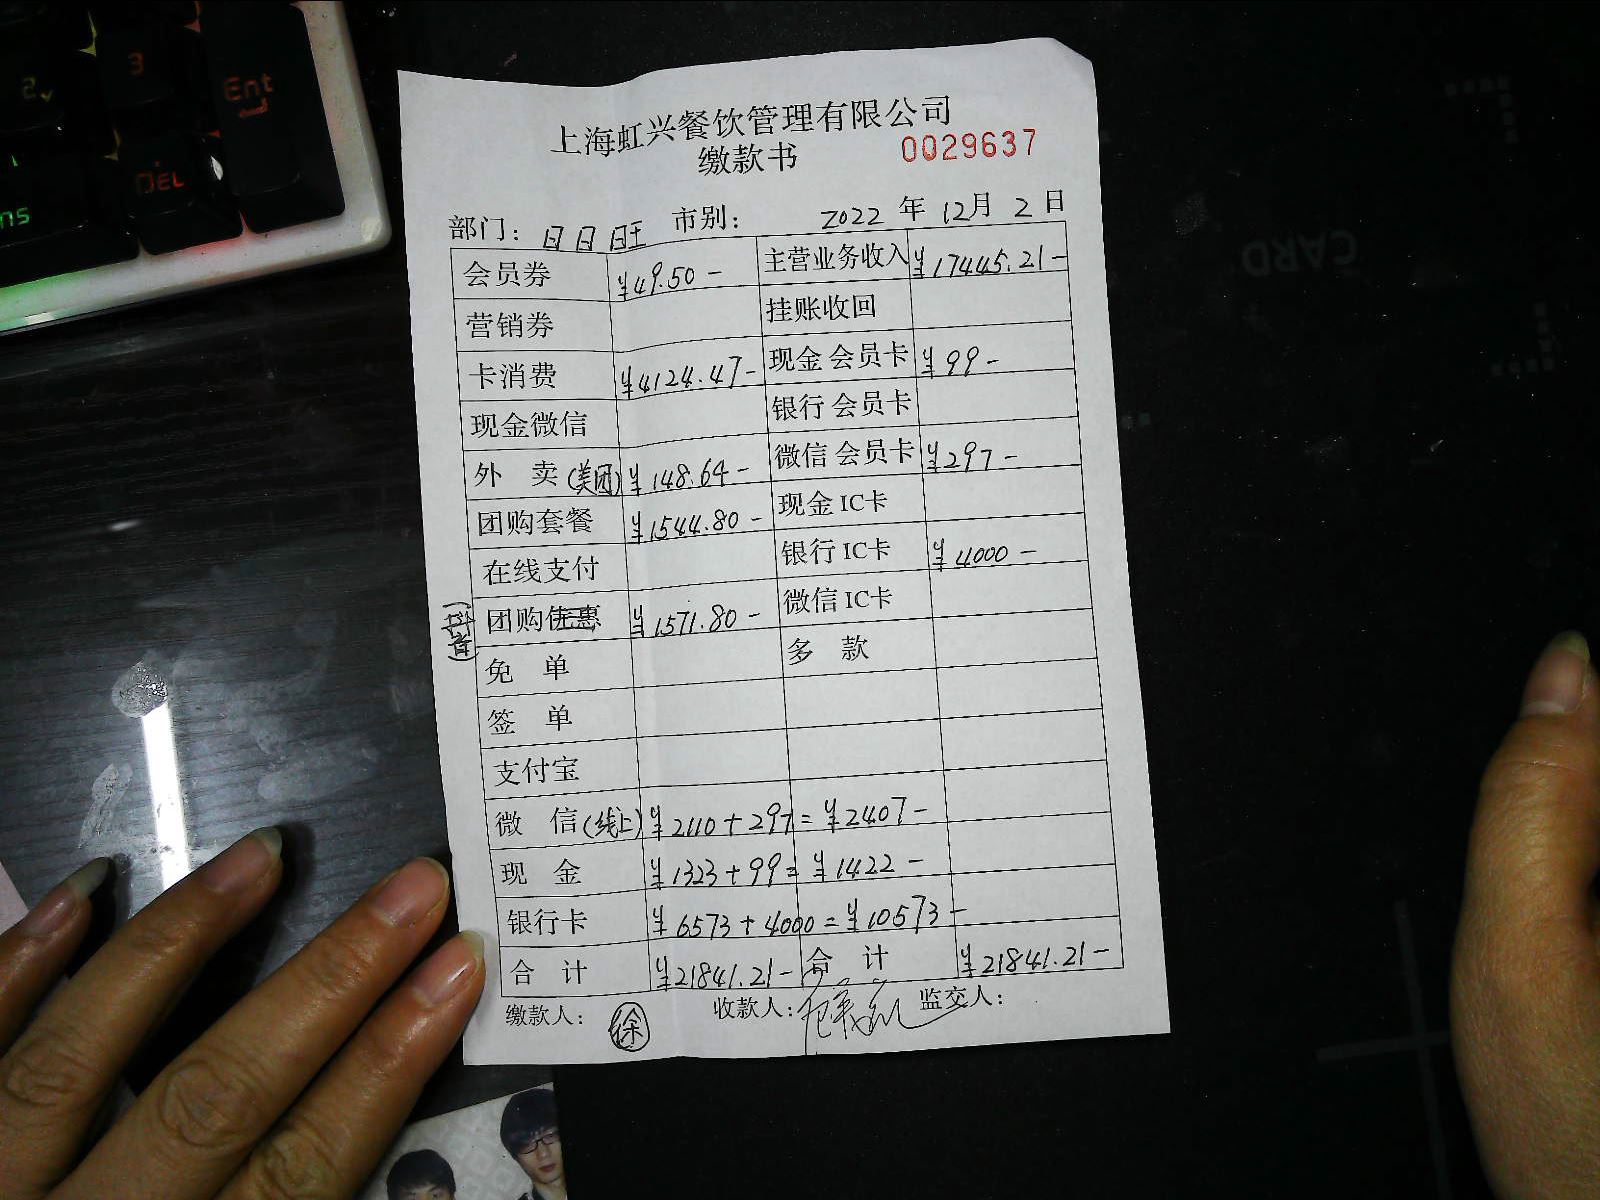 2
3
Ent
DEL
ns
CARD
上海虹兴餐饮管理有限公司
缴款书 0029637
部门: 日日旺 市别: 2022 年 12月 2 日
会员券 ¥49.50- 主营业务收入 ¥17445.21-
营销券 挂账收回
卡消费 ¥4124.47- 现金 会员卡 ¥99-
现金微信 银行 会员卡
外 卖(美团) ¥148.64- 微信 会员卡 ¥297-
团购套餐 ¥1544.80- 现金 IC卡
在线支付 银行 IC卡 ¥4000-
(抖音) 团购优惠 ¥1571.80- 微信 IC卡
免 单 多 款
签 单
支付宝
微 信(线上) ¥2110+297=¥2407-
现 金 ¥1323+99=¥1422-
银行卡 ¥6573+4000=¥10573-
合 计 ¥21841.21- 合 计 ¥21841.21-
缴款人: 徐 收款人: 监交人: